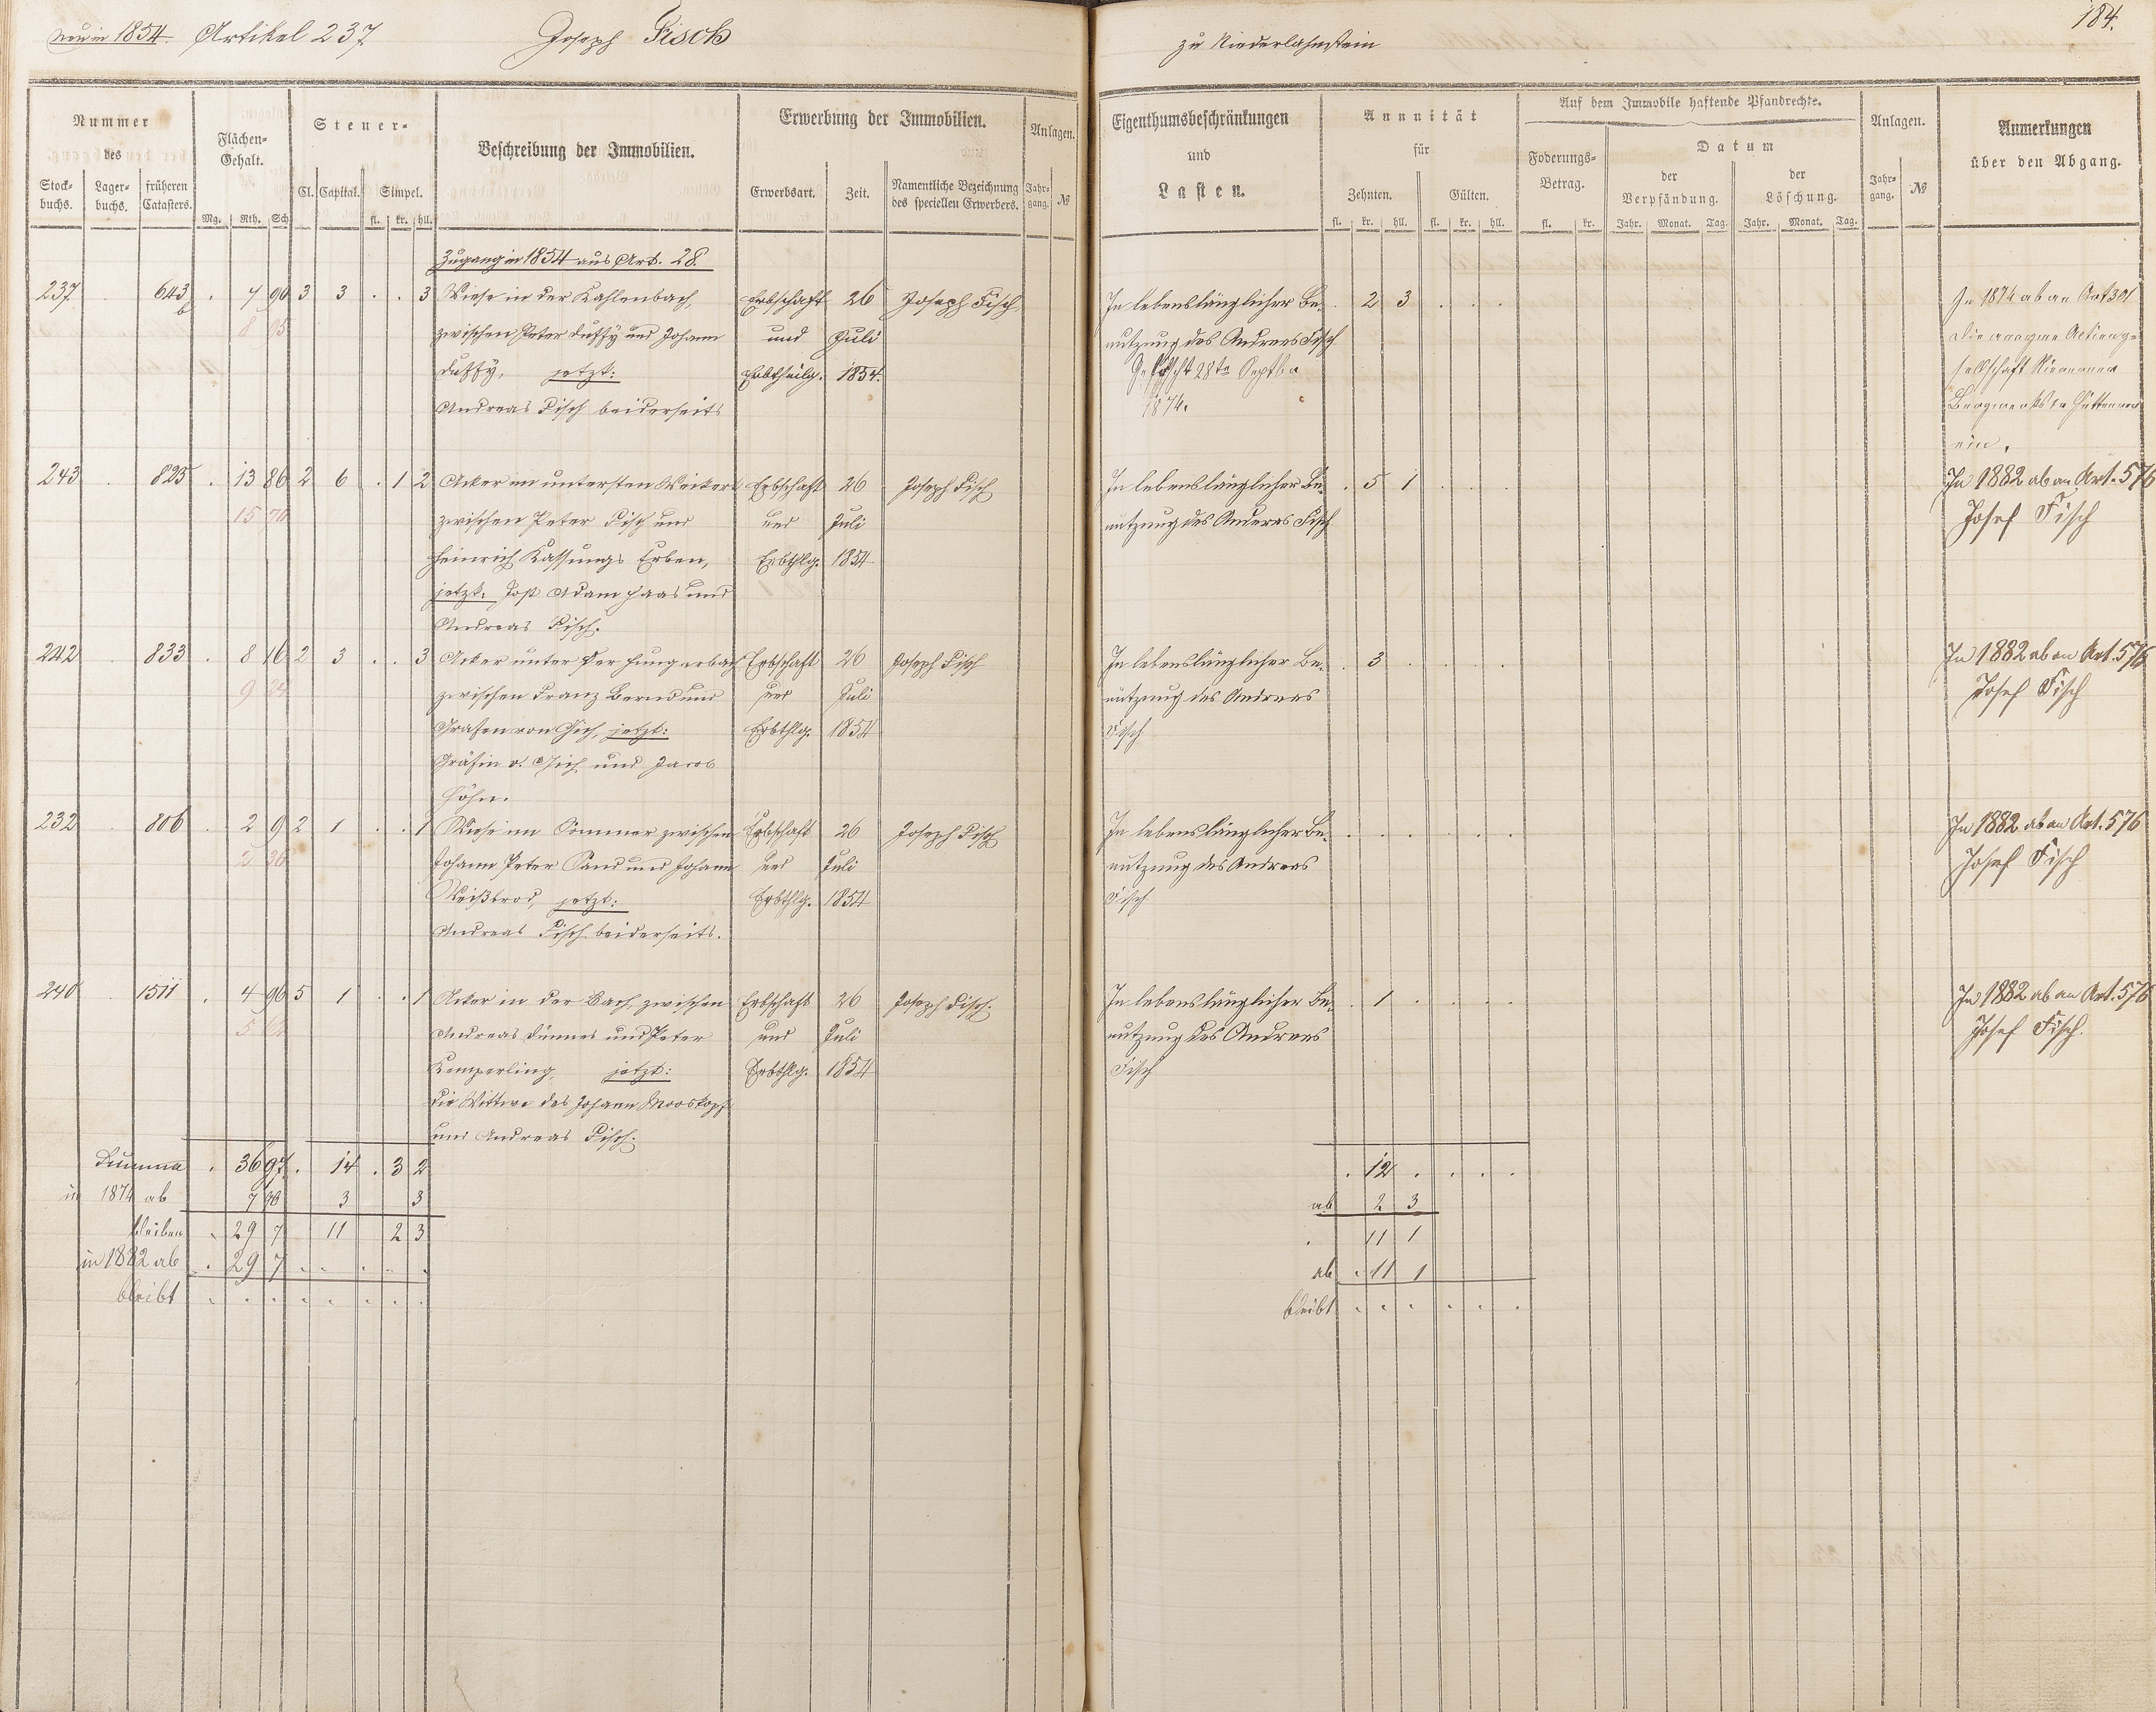 neu in 1854. Artikel 237 Joseph Fisch
zu Niederlahnstein 184.
Nummer des
Stock-buchs. Lager-buchs. früheren Catasters.
Flächen-Gehalt.
Mg. Rth. Sch.
Steuer-
Cl. Capital. Simpel.
fl. kr. hll.
Beschreibung der Immobilien.
Erwerbung der Immobilien.
Erwerbsart. Zeit. Namentliche Bezeichnung des speciellen Erwerbers.
Anlagen.
Jahr-gang. №
Eigenthumsbeschränkungen
und
Lasten.
Annuität
für
Zehnten. Gülten.
fl. kr. hll. fl. kr. hll.
Auf dem Immobile haftende Pfandrechte.
Foderungs-Betrag.
fl. kr.
Datum
der Verpfändung. der Löschung.
Jahr. Monat. Tag. Jahr. Monat. Tag.
Anlagen.
Jahr-gang. №
Anmerkungen
über den Abgang.
Zugang in 1854 aus Art. 28.
237 . 643 b . 7 90 3 3 . . 3 Wiese in der Kahlenbach, Erbschaft 26 Joseph Fisch
8 95 zwischen Peter Duffy und Johann und Juli
Duffy, jetzt: Erbtheilg. 1854.
Andreas Fisch beiderseits
In lebenslänglicher Be- . 2 3 . . .
nutzung des Andreas Fisch
Gelöscht 28ten Septber
1874.
In 1874 ab an Art 301
die anonyme Actienge
sellschaft
Bergwerks & Hütten
243 . 825 . 13 86 2 6 . 1 2 Acker im untersten Weikert Erbschaft 26 Joseph Fisch
15 70 zwischen Peter Fisch und und Juli
Heinrich Kassungs Erben, Erbthlg. 1854
jetzt: Jost Adam Haas und
Andreas Fisch.
In lebenslänglicher Be- . 5 1 . . .
nutzung des Andreas Fisch
In 1882 ab an Art. 576
Josef Fisch
242 . 833 . 8 16 2 3 . . 3 Acker unter der Hungerbach Erbschaft 26 Joseph Fisch
9 24 zwischen Franz Bernd und und Juli
Grafen von Gich, jetzt: Erbthlg. 1854
Gräfin v. Gich und Jacob
Höhn.
In lebenslänglicher Be- . 3 . . . .
nutzung des Andreas
Fisch
In 1882 ab an Art. 576
Josef Fisch
232 . 806 . 2 9 2 1 . . 1 Wiese im Sommer zwischen Erbschaft 26 Joseph Fisch
2 36 Johann Peter Sand und Johann und Juli
Weißbrod, jetzt: Erbthlg. 1854
Andreas Fisch beiderseits.
In lebenslänglicher Be- . . . . . .
nutzung des Andreas
Fisch
In 1882 ab an Art. 576
Josef Fisch
240 . 1511 . 4 96 5 1 . . 1 Acker in der Bach, zwischen Erbschaft 26 Joseph Fisch.
5 62 Andreas Dünnes und Peter und Juli
Kemperling, jetzt: Erbthlg. 1854
die Wittwe des Johann Mooskopf
und Andreas Fisch.
In lebenslänglicher Be- . 1 . . . .
nutzung des Andreas
Fisch
In 1882 ab an Art. 576
Josef Fisch.
Summa . 36 97 . 14 . 3 2 . 12 . . . .
in 1874 ab 7 90 3 3 ab 2 3
bleiben . 29 7 11 2 3 . 11 1
in 1882 ab . 29 7 . . . . . ab . 11 1
bleibt . . . . . . . . bleibt . . . . . .